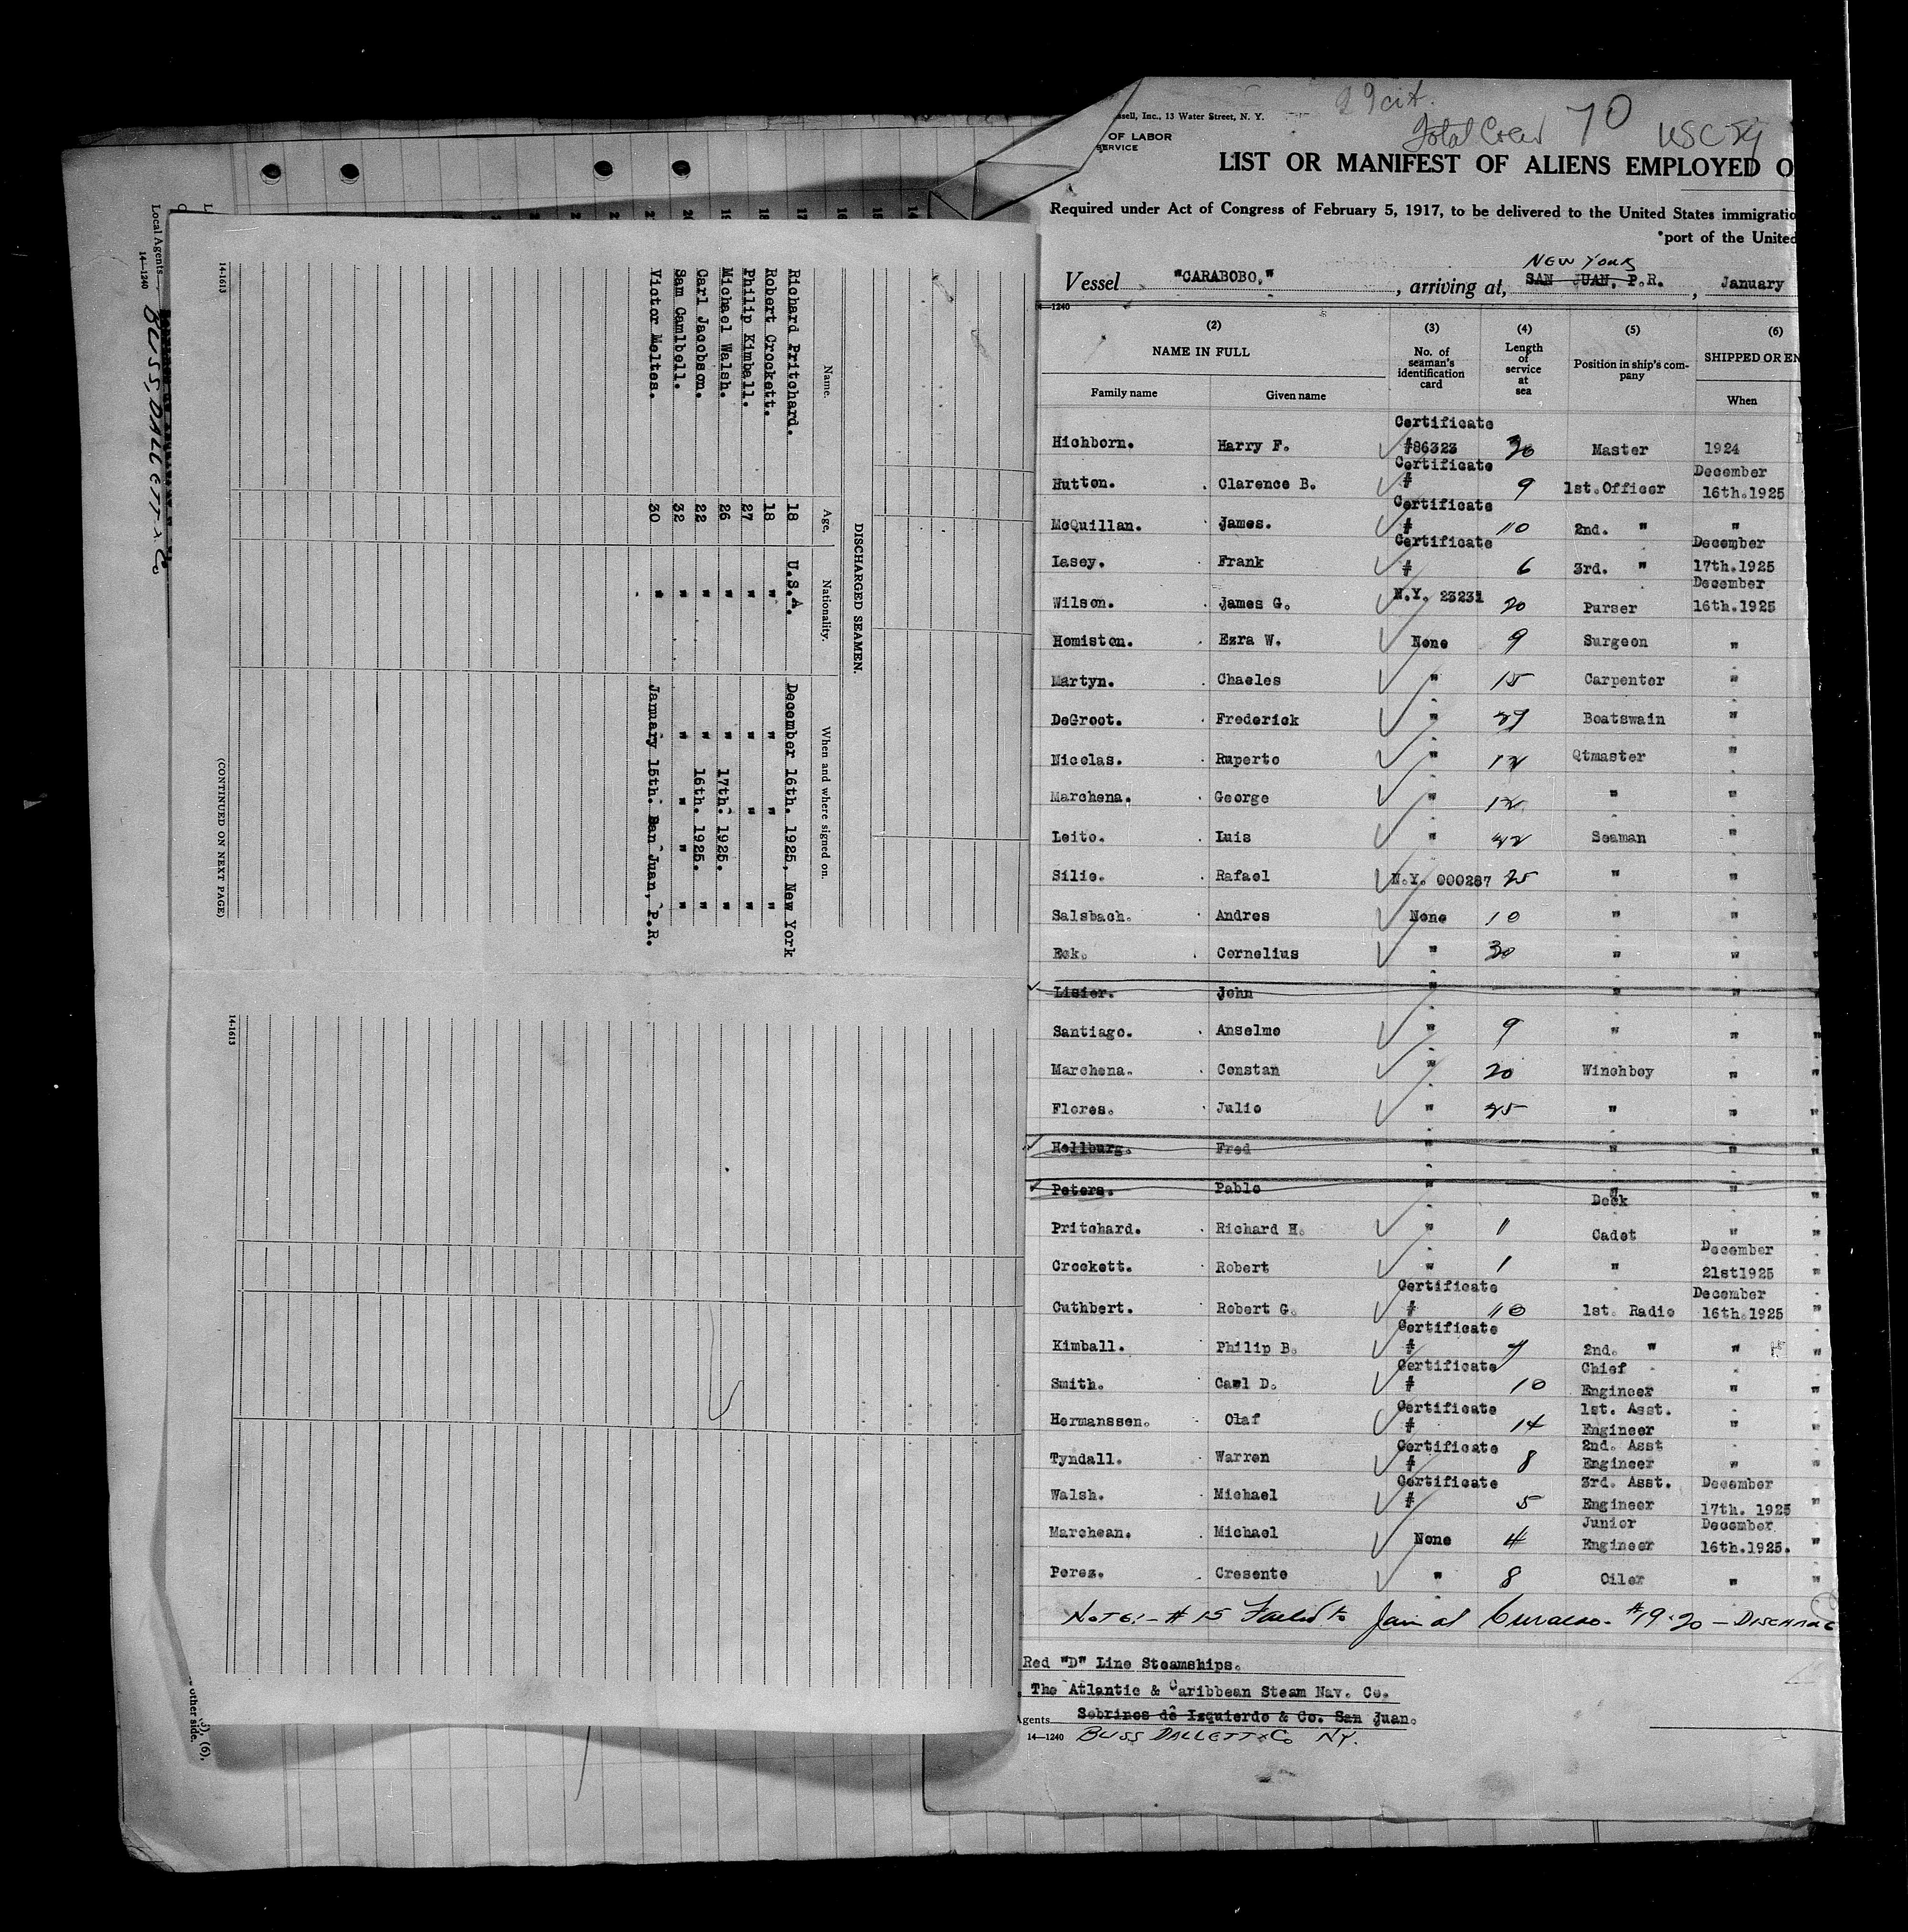 Local Agents
14—1240
BLISS, DALLETT & Co
14-1613
DISCHARGED SEAMEN.
Name. Age. Nationality. When and where signed on.
Richard Pritchard. 18 U.S.A. December 16th. 1925, New York
Robert Crockett. 18 " " " "
Philip Kimball. 27 " " " "
Michael Walsh. 26 " " 17th. 1925. "
Carl Jacobson. 22 " " 16th. 1925. "
Sam Camlbell. 32 " " " " "
Victor Meltes. 30 " January 15th. San Juan, P.R.
(CONTINUED ON NEXT PAGE)
14-1613
other side.
29 cit.
Total Crew 70 USC 29
ssell, Inc., 13 Water Street, N. Y.
OF LABOR
SERVICE
LIST OR MANIFEST OF ALIENS EMPLOYED O
Required under Act of Congress of February 5, 1917, to be delivered to the United States immigratio
*port of the United
NEW YORK
Vessel "CARABOBO," , arriving at, SAN JUAN, P.R. , January
14—1240
(2) (3) (4) (5) (6)
NAME IN FULL No. of seaman's identification card Length of service at sea Position in ship's company SHIPPED OR EN
Family name Given name When
Hichborn. Harry F. Certificate #86323 30 Master 1924
Hutton. Clarence B. Certificate # 9 1st.Officer December 16th.1925
McQuillan. James. Certificate # 10 2nd. " "
Lasey. Frank Certificate # 6 3rd. " December 17th.1925
Wilson. James G. N.Y. 23231 20 Purser December 16th.1925
Homiston. Ezra W. None 9 Surgeon "
Martyn. Chaeles " 15 Carpenter "
DeGroot. Frederick " 29 Boatswain "
Nicolas. Ruperto " 12 Qtmaster "
Marchena. George " 12 " "
Leito. Luis " 22 Seaman "
Silie. Rafael N.Y. 000287 25 " "
Salsbach. Andres None 10 " "
Eck. Cornelius " 30 " "
Lisier. John " " " "
Santiago. Anselmo " 9 " "
Marchena. Constan " 20 Winchboy " "
Flores. Julio " 25 " " "
Hellburg. Fred " " " "
Peters. Pablo " " " "
Pritchard. Richard H. " 1 Deck Cadet " "
Crockett. Robert " 1 " December 21st1925 "
Cuthbert. Robert G. Certificate # 10 1st. Radio December 16th.1925 "
Kimball. Philip B. Certificate # 4 2nd. " " "
Smith. Carl D. Certificate # 10 Chief Engineer " "
Hermanssen. Olaf Certificate # 14 1st. Asst. Engineer " "
Tyndall. Warren Certificate # 8 2nd. Asst Engineer " "
Walsh. Michael Certificate # 5 3rd. Asst. Engineer December 17th. 1925 "
Marchean. Michael None 4 Junior Engineer December 16th.1925. "
Perez. Cresente " 8 Oiler " "
NOTE:- # 15 Failed to Join at Curacao. #19-20 — DISCHARG
Red "D" Line Steamships.
The Atlantic & Caribbean Steam Nav. Co.
Agents Sobrinos de Izquierdo & Co. San Juan.
14—1240 BLISS DALLETT & Co NY.